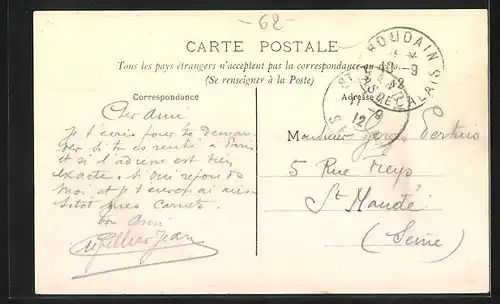 -62-
CARTE POSTALE
Tous les pays étrangers n'acceptent pas la correspondance au
(Se renseigner à la Poste)
Correspondance
Cher ami
Je t'écris pour te deman
der si tu es rentré à Paris
et si l'adresse est bien
exacte. Si oui reponds
moi et je t'enverrai aus
sitot mes carnets.
ton Ami
Jean
Adresse
Monsieur
5 Rue
St Mandé
(Seine)
HOUDAIN
10-9
12
PAS DE CALAIS
11-9
12